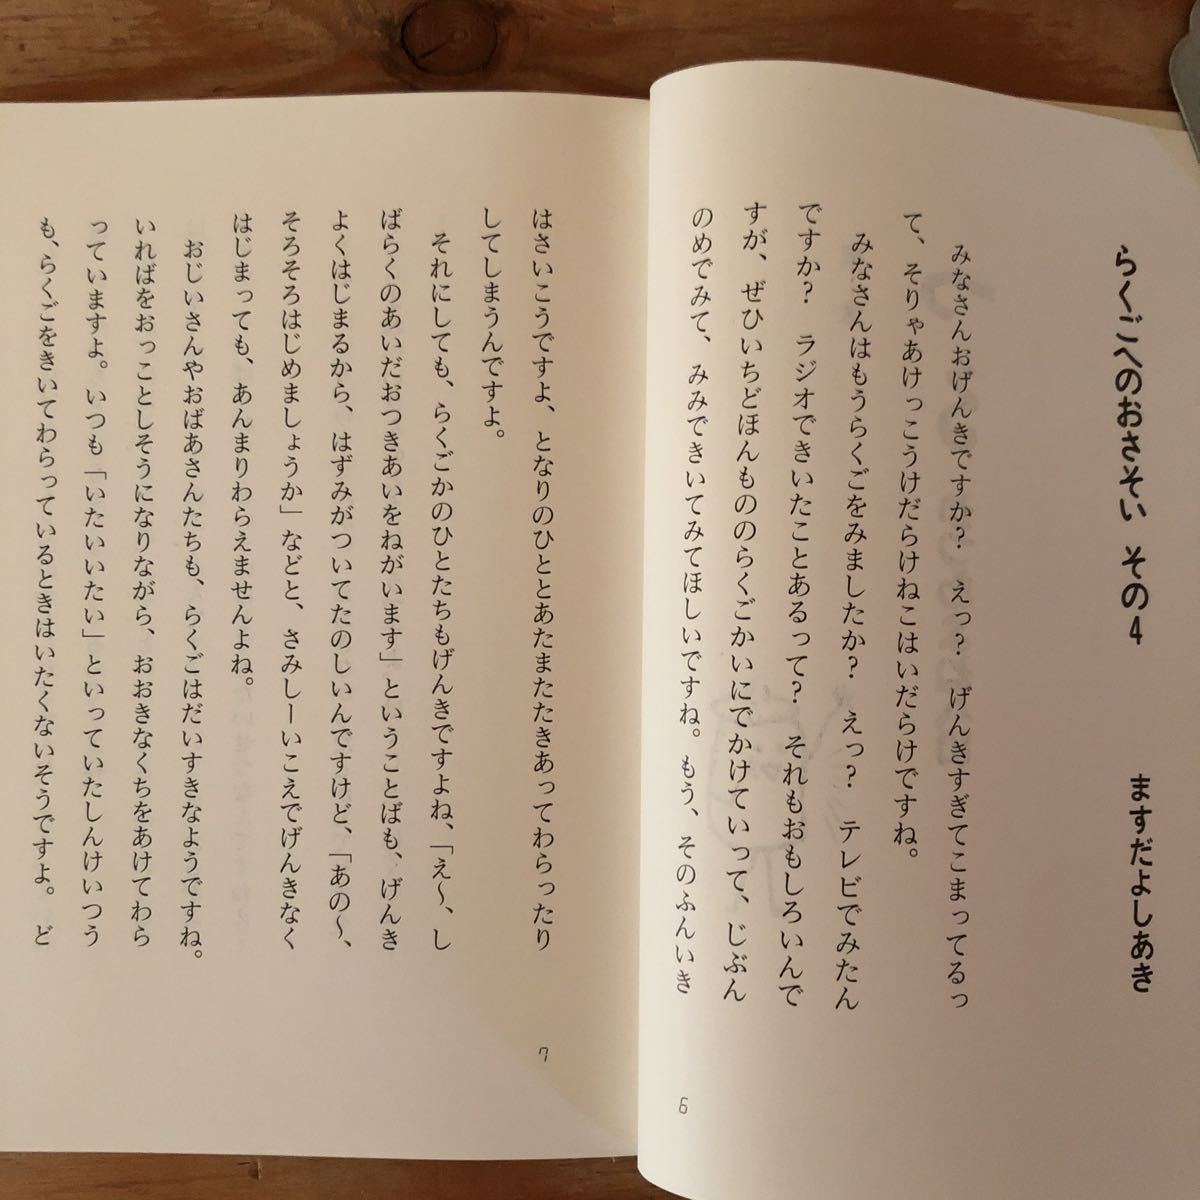 らくごへのおさそい その4
ますだよしあき
みなさんおげんきですか？ えっ？ げんきすぎてこまってるっ
て、そりゃあけっこうけだらけねこはいだらけですね。
みなさんはもうらくごをみましたか？ えっ？ テレビでみたん
ですか？ ラジオできいたことあるって？ それもおもしろいんで
すが、ぜひいちどほんもののらくごかいにでかけていって、じぶん
のめでみて、みみできいてみてほしいですね。もう、そのふんいき
6
はさいこうですよ、となりのひととあたまたたきあってわらったり
してしまうんですよ。
それにしても、らくごかのひとたちもげんきですよね、「え〜、し
ばらくのあいだおつきあいをねがいます」ということばも、げんき
よくはじまるから、はずみがついてたのしいんですけど、「あの〜、
そろそろはじめましょうか」などと、さみしーいこえでげんきなく
はじまっても、あんまりわらえませんよね。
おじいさんやおばあさんたちも、らくごはだいすきなようですね。
いればをおっことしそうになりながら、おおきなくちをあけてわら
っていますよ。いつも「いたいいたい」といっていたしんけいつう
も、らくごをきいてわらっているときはいたくないそうですよ。ど
7